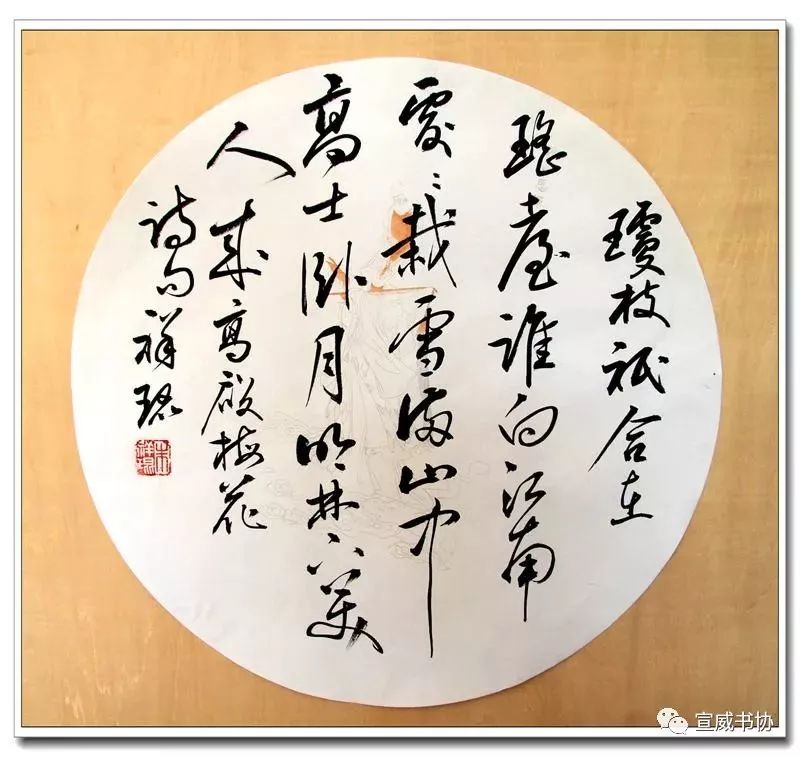 瓊枝祇合在
瑤臺誰向江南
處々栽雪滿山中
高士臥月明林下美
人來高啟梅花
詩句祥
宣威书协